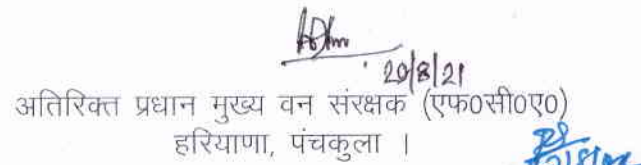 20/8/21
अतिरिक्त प्रधान मुख्य वन संरक्षक (एफ0सी0ए0)
हरियाणा, पंचकुला ।